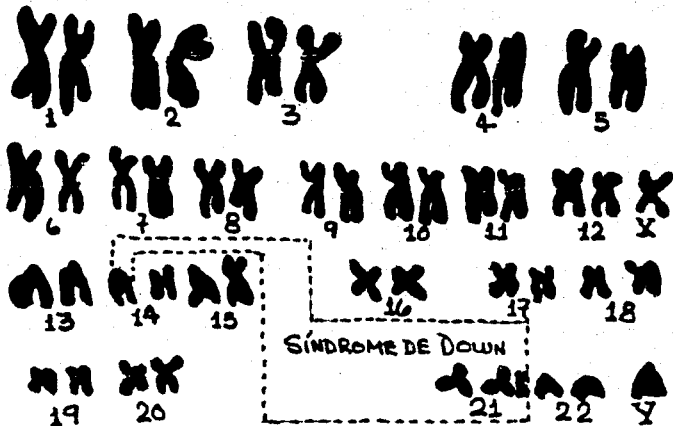 1 2 3 4 5
6 7 8 9 10 11 12 X
13 14 15 16 17 18
SÍNDROME DE DOWN
19 20 21 22 Y